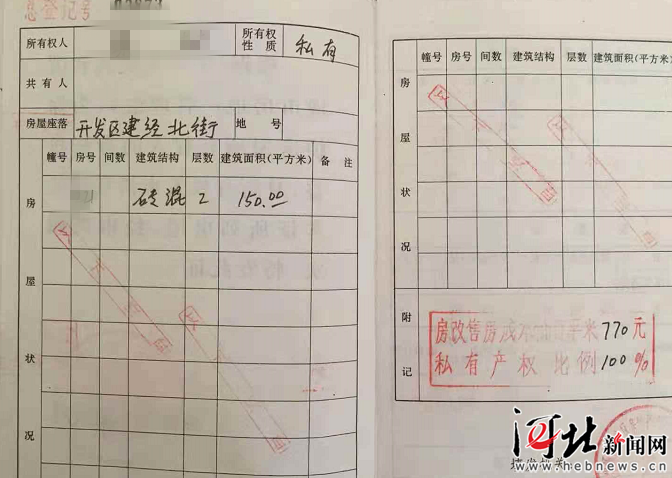 息登记号
所有权人
所有权性质 私有
共有人
房屋座落 开发区建经北街 地号
幢号 房号 间数 建筑结构 层数 建筑面积(平方米) 备注
砖混 2 150.00
房屋状况
幢号 房号 间数 建筑结构 层数 建筑面积(平方米)
房屋状况
附记
房改售房成 米770元
私有产权比例100%
河北新闻网
www.hebnews.cn